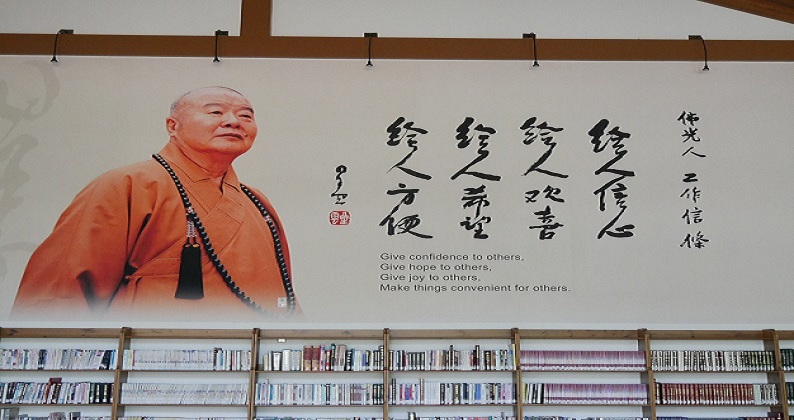 佛光人 工作信條
給人信心
給人欢喜
給人希望
給人方便
星雲
Give confidence to others,
Give hope to others,
Give joy to others,
Make things convenient for others.